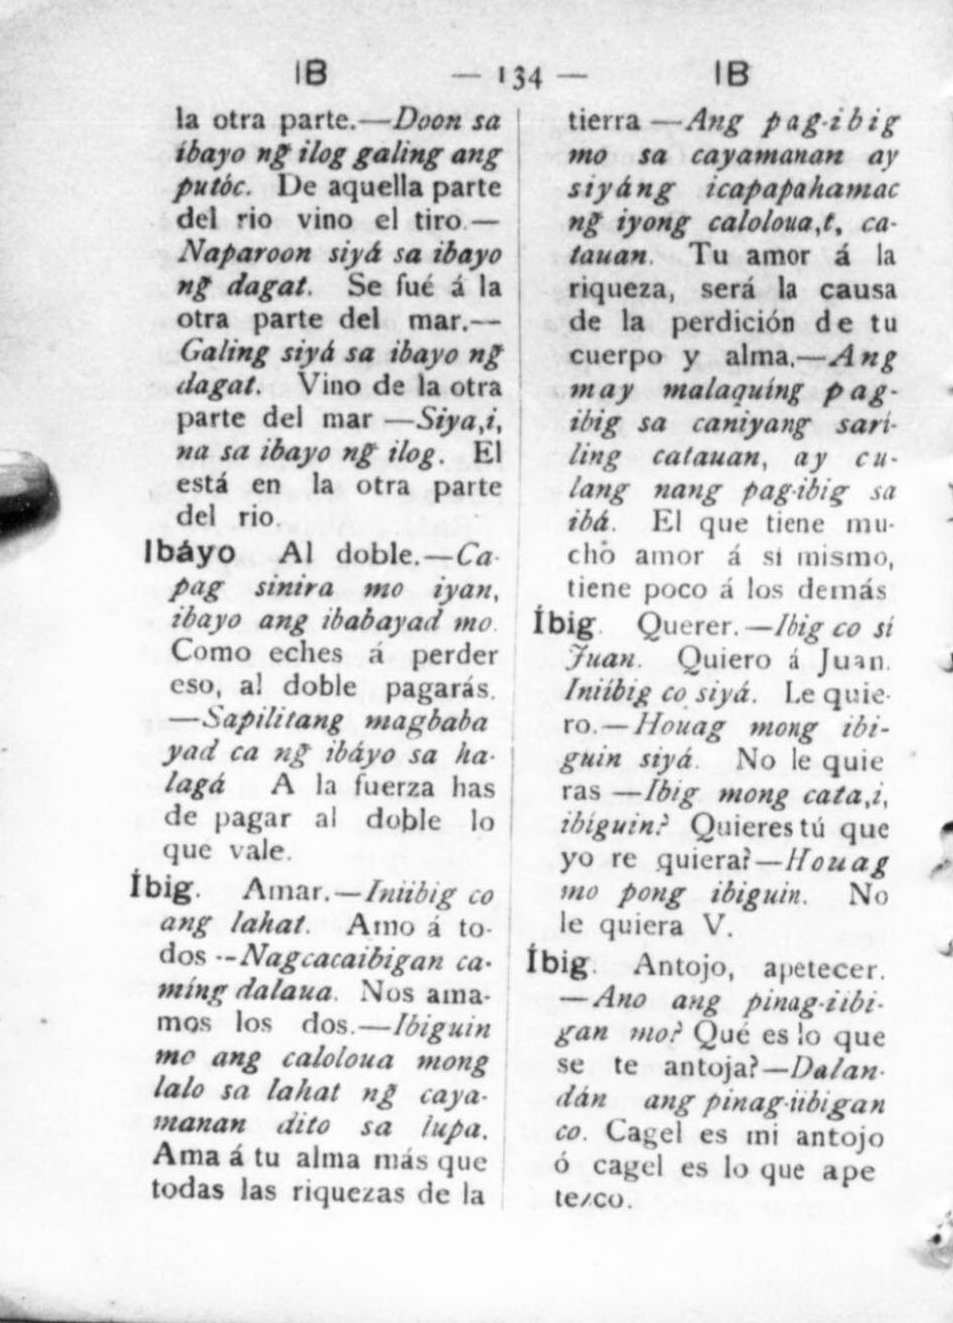 IB — 134 — IB
la otra parte.—Doon sa
ibayo ng̃ ilog galing ang
putóc. De aquella parte
del rio vino el tiro.—
Naparoon siyá sa ibayo
ng̃ dagat. Se fué á la
otra parte del mar.—
Galing siyá sa ibayo ng̃
dagat. Vino de la otra
parte del mar —Siya,i,
na sa ibayo ng̃ ilog. El
está en la otra parte
del rio.
Ibáyo Al doble.—Ca-
pag sinira mo iyan,
ibayo ang ibabayad mo.
Como eches á perder
eso, al doble pagarás.
—Sapilitang magbaba
yad ca ng̃ ibáyo sa ha-
lagá A la fuerza has
de pagar al doble lo
que vale.
Íbig. Amar.—Iniibig co
ang lahat. Amo á to-
dos --Nagcacaibigan ca-
míng dalaua. Nos ama-
mos los dos.—Ibiguin
mo ang caloloua mong
lalo sa lahat ng̃ caya-
manan dito sa lupa.
Ama á tu alma más que
todas las riquezas de la
tierra —Ang pag-ibig
mo sa cayamanan ay
siyáng icapapahamac
ng̃ iyong caloloua,t, ca-
tauan. Tu amor á la
riqueza, será la causa
de la perdición de tu
cuerpo y alma.—Ang
may malaquíng pag-
ibig sa caniyang sari-
ling catauan, ay cu-
lang nang pag-ibig sa
ibá. El que tiene mu-
cho amor á si mismo,
tiene poco á los demás
Íbig. Querer.—Ibig co sí
Juan. Quiero á Juan.
Iniíbig co siyá. Le quie-
ro.—Houag mong ibi-
guin siyá. No le quie
ras —Ibig mong cata,i,
ibíguin? Quieres tú que
yo te quiera?—Houag
mo pong ibiguin. No
le quiera V.
Íbig. Antojo, apetecer.
—Ano ang pinag-iibi-
gan mo? Qué es lo que
se te antoja?—Dalan-
dán ang pinag-iibigan
co. Cagel es mi antojo
ó cagel es lo que ape
tezco.